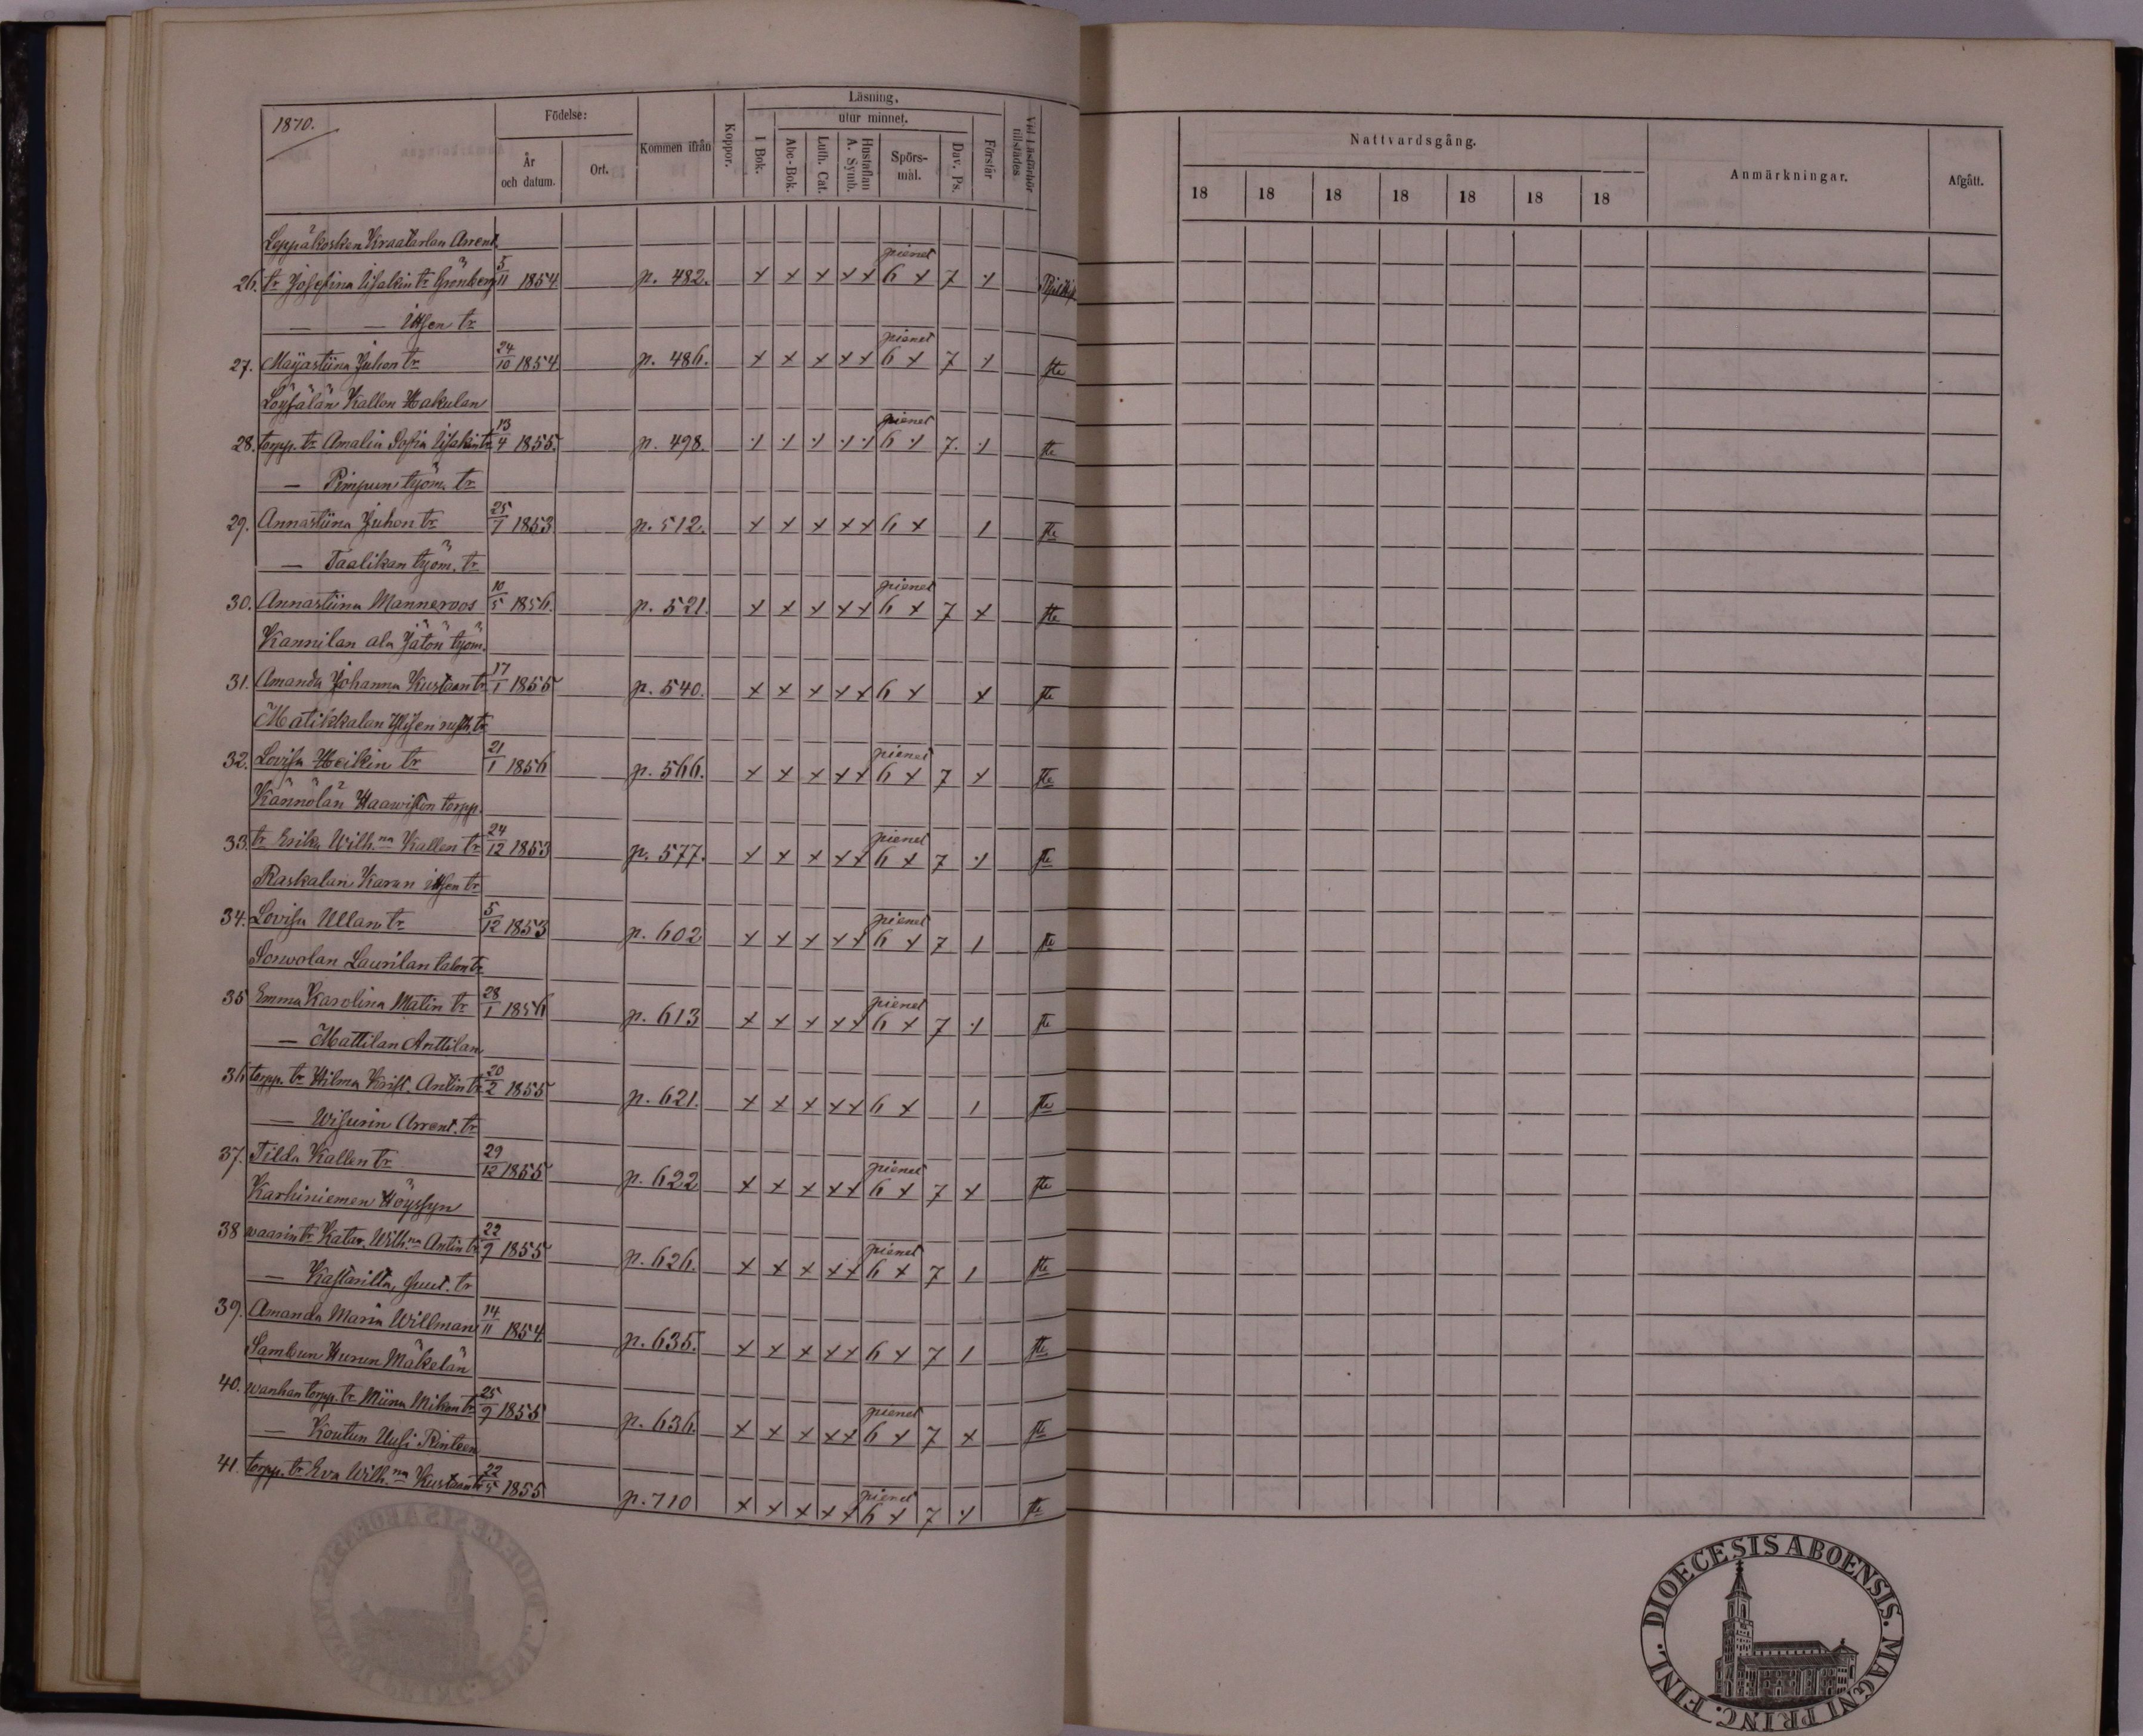 1870.
Födelse:
År och datum.
Ort.
Kommen ifrån
Koppor.
Läsning.
utur minnet.
I Bok.
Abc-Bok.
Luth. Cat.
Hustaflan A. Symb.
Spörs-mål.
Dav. Ps.
Förstår
Vid Läsförhör tillstädes
Nattvardsgång.
18 18 18 18 18 18 18
Anmärkningar.
Afgått.
Leppäkosken Kraatarlan Arrent.
pienet
26. tr Josefina Iisakin tr Grönberg 5/11 1854 p. 482. x x x x x 6 x 7 ·/·
— — Itsen tr
pienet
27. Maijastiina Juhon tr 24/10 1854 p. 486. x x x x x 6 x 7 ·/· tle
Löysälän Kallon Hakulan
pienet
28. torpp. tr Amalia Sofia Iisakin tr 13/4 1855. p. 498. ·/· ·/· ·/· ·/· ·/· 6 ·/· 7. ·/· tle
— Pimpun työm. tr
29. Annastiina Juhon tr 25/7 1853 p. 512. x x x x x 6 x / tle
— Taalikan työm. tr
pienet
30. Annastiina Manneroos 10/5 1856. p. 521. x x x x x 6 x 7 x tle
Kannilan ala Jätön työm.
31. Amanda Johanna Kustaan tr 17/1 1855 p. 540. x x x x x 6 x x tle
Matikkalan Ylisen rusth. tr
pienet
32. Lovisa Heikin tr 21/1 1856 p. 566. x x x x x 6 x 7 x tle
Kännölän Haawiston torpp.
pienet
33. tr Erika Wilh:na Kallen tr 24/12 1853 p. 577. x x x x x 6 x 7 ·/· tle
Raskalan Karan itsen tr
pienet
34. Lovisa Ullan tr 5/12 1853 p. 602 x x x x x 6 x 7 / tle
Sorwolan Laurilan talon tr
pienet
35 Emma Karolina Matin tr 28/1 1856 p. 613 x x x x x 6 x 7 ·/· tle
— Mattilan Anttilan
36 torpp. tr Hilma Krist. Antin tr 20/2 1855 p. 621. x x x x x 6 x / tle
— Wisurin Arrent. tr
pienet
37. Tilda Kallen tr 29/12 1855 p. 622 x x x x x 6 x 7 x tle
Karhiniemen Höyssyn
pienet
38 waarin tr Katar. Wilh:na Antin tr 22/9 1855 p. 626. x x x x x 6 x 7 / tle
— Kastarilta, suut. tr
39. Amanda Maria Willman 14/11 1854 p. 635. x x x x x 6 x 7 / tle
Sambun Hurun Mäkelän
pienet
40. wanhan torpp. tr Miina Mikon tr 25/9 1855 p. 636. x x x x x 6 x 7 x tle
— Koutun Uusi Rinteen
pienet
41. torpp. tr Eva Wilh:na Kustaan tr 22/5 1855 p. 710 x x x x x 6 x 7 ·/· tle
DIOECESIS ABOENSIS. MAGNI PRINC. FINL.